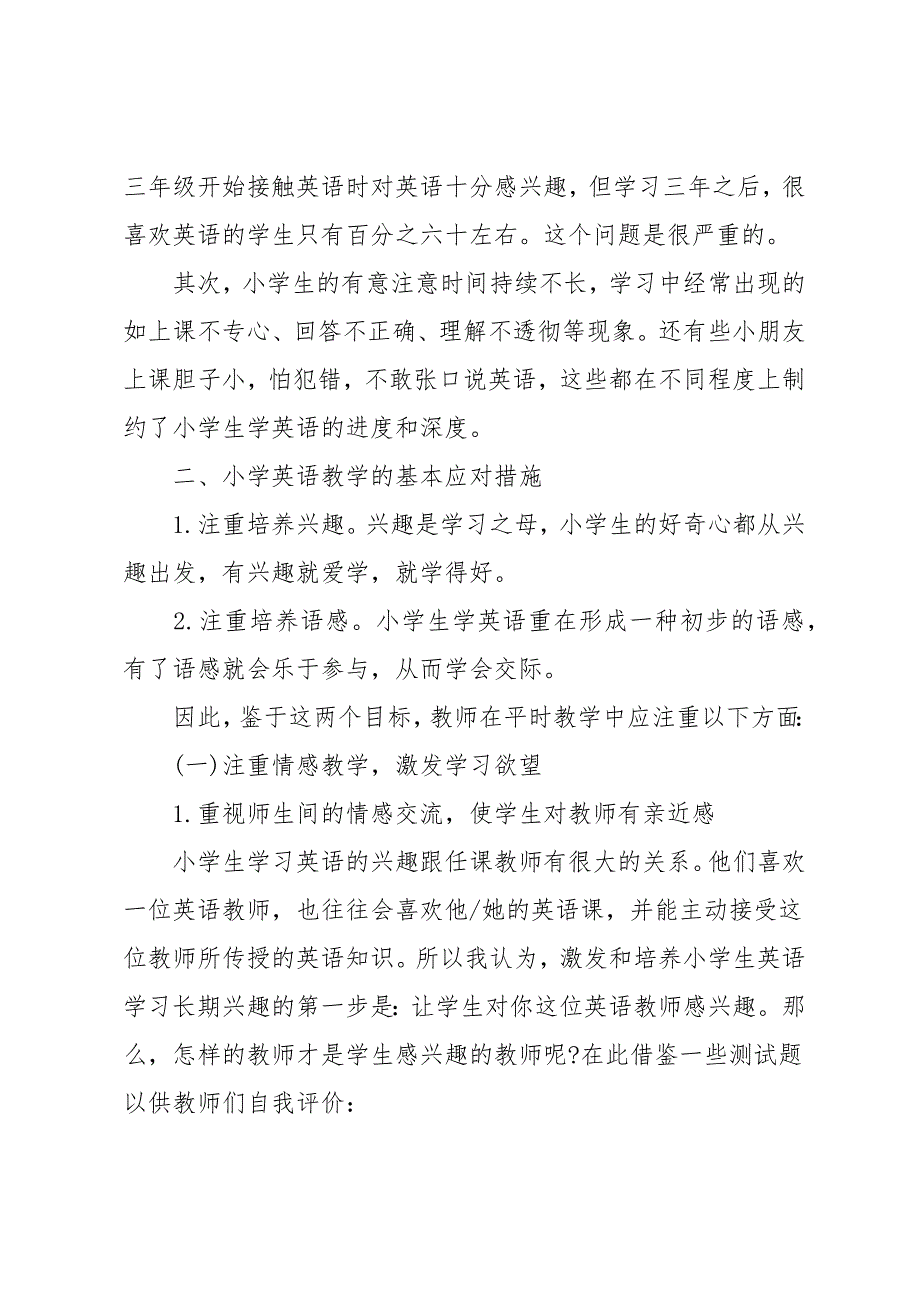 三年级开始接触英语时对英语十分感兴趣，但学习三年之后，很
喜欢英语的学生只有百分之六十左右。这个问题是很严重的。
其次，小学生的有意注意时间持续不长，学习中经常出现的
如上课不专心、回答不正确、理解不透彻等现象。还有些小朋友
上课胆子小，怕犯错，不敢张口说英语，这些都在不同程度上制
约了小学生学英语的进度和深度。
二、小学英语教学的基本应对措施
1.注重培养兴趣。兴趣是学习之母，小学生的好奇心都从兴
趣出发，有兴趣就爱学，就学得好。
2.注重培养语感。小学生学英语重在形成一种初步的语感，
有了语感就会乐于参与，从而学会交际。
因此，鉴于这两个目标，教师在平时教学中应注重以下方面：
(一)注重情感教学，激发学习欲望
1.重视师生间的情感交流，使学生对教师有亲近感
小学生学习英语的兴趣跟任课教师有很大的关系。他们喜欢
一位英语教师，也往往会喜欢他/她的英语课，并能主动接受这
位教师所传授的英语知识。所以我认为，激发和培养小学生英语
学习长期兴趣的第一步是：让学生对你这位英语教师感兴趣。那
么，怎样的教师才是学生感兴趣的教师呢?在此借鉴一些测试题
以供教师们自我评价：